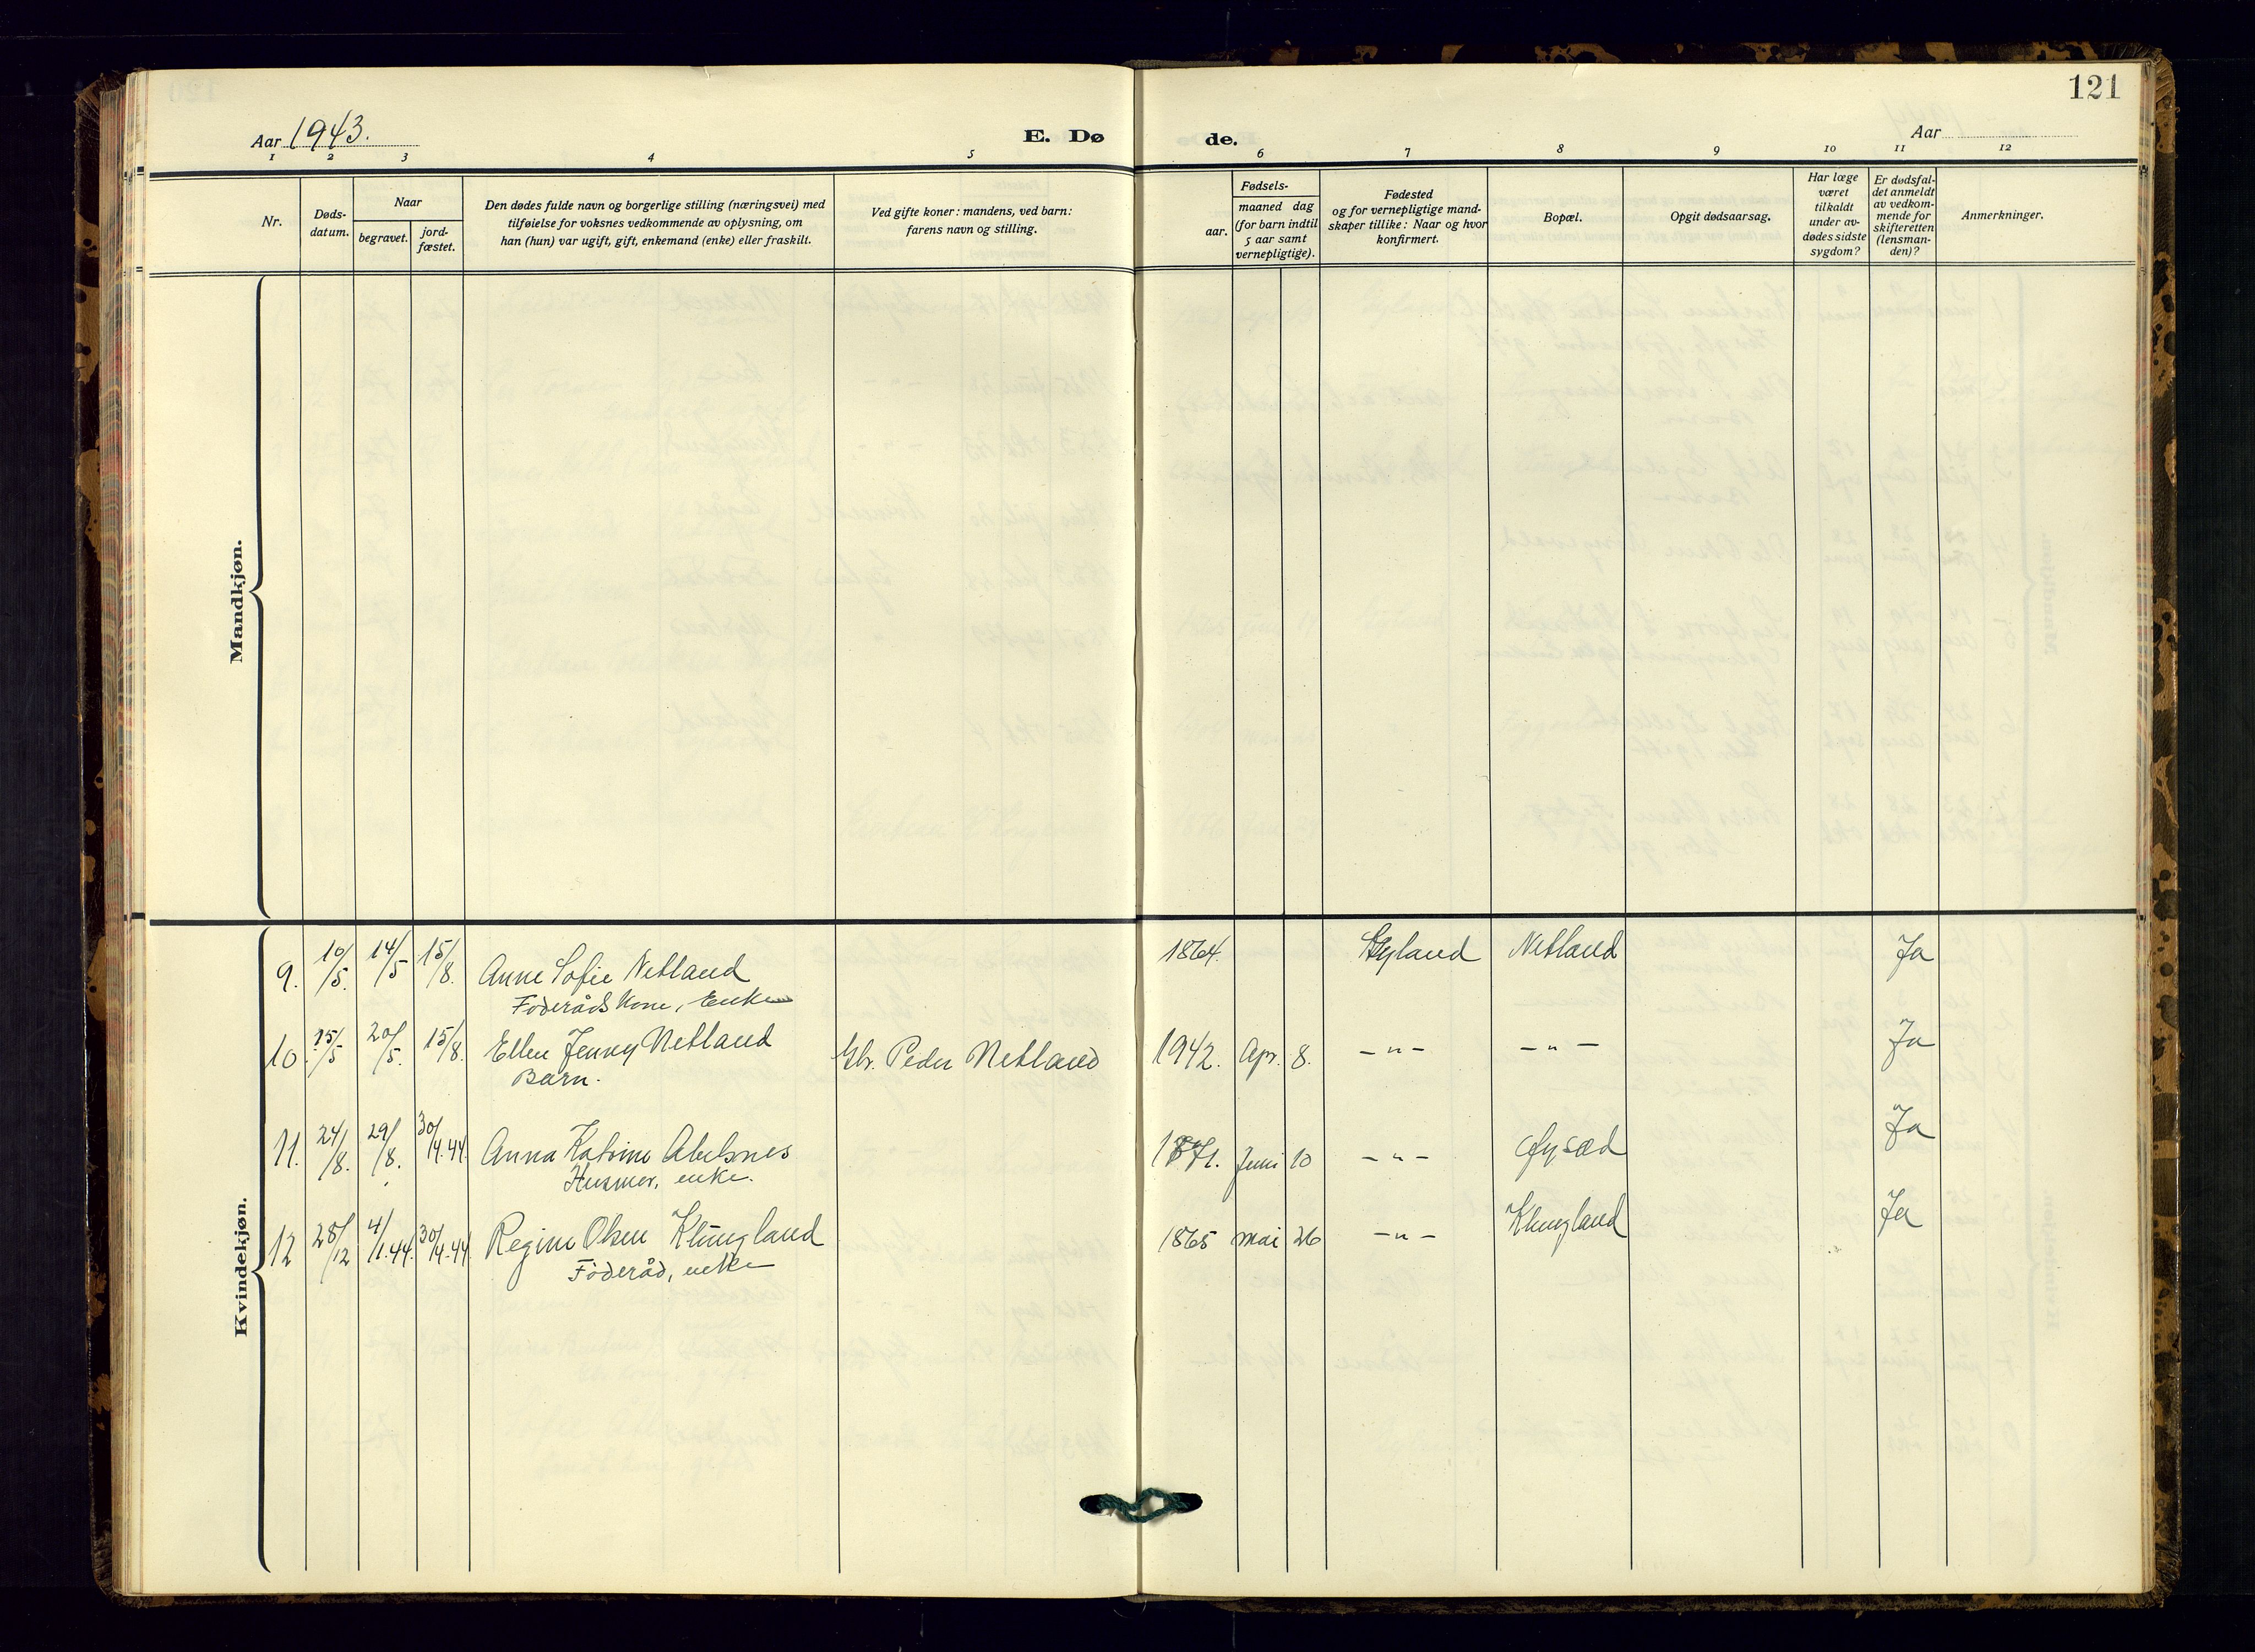 121
Aar 1943.
E. Dø de.
Aar
1 2 3 4 5 6 7 8 9 10 11 12
Nr.
Døds-
datum.
Naar
begravet.
jord-
fæstet.
Den dødes fulde navn og borgerlige stilling (næringsvei) med
tilføielse for voksnes vedkommende av oplysning, om
han (hun) var ugift, gift, enkemand (enke) eller fraskilt.
Ved gifte koner: mandens, ved barn:
farens navn og stilling.
Fødsels-
aar.
maaned dag
(for barn indtil
5 aar samt
vernepligtige).
Fødested
og for vernepligtige mand-
skaper tillike: Naar og hvor
konfirmert.
Bopæl.
Opgit dødsaarsag.
Har læge
været
tilkaldt
under av-
dødes sidste
sygdom?
Er dødsfal-
det anmeldt
av vedkom-
mende for
skifteretten
(lensman-
den)?
Anmerkninger.
Mandkjøn.
Kvindekjøn.
9. 10/5. 14/5 15/8. Anne Sofie Netland 1864. Gyland Netland Ja
Föderåds kone, Enke
10. 15/5 20/5. 15/8. Ellen Jenny Netland Gbr. Peder Netland 1942. Apr. 8. -"- -"- Ja
Barn.
11. 24/8. 29/8. 30/4.44. Anna Katrine Abelsnes 1871. Juni 10 -"- Ja
Husmor, enke.
12 28/12 4/1.44. 30/4.44 Regine Olsen Klungland 1865 mai 26 -"- Klungland Ja
Föderåd, enke